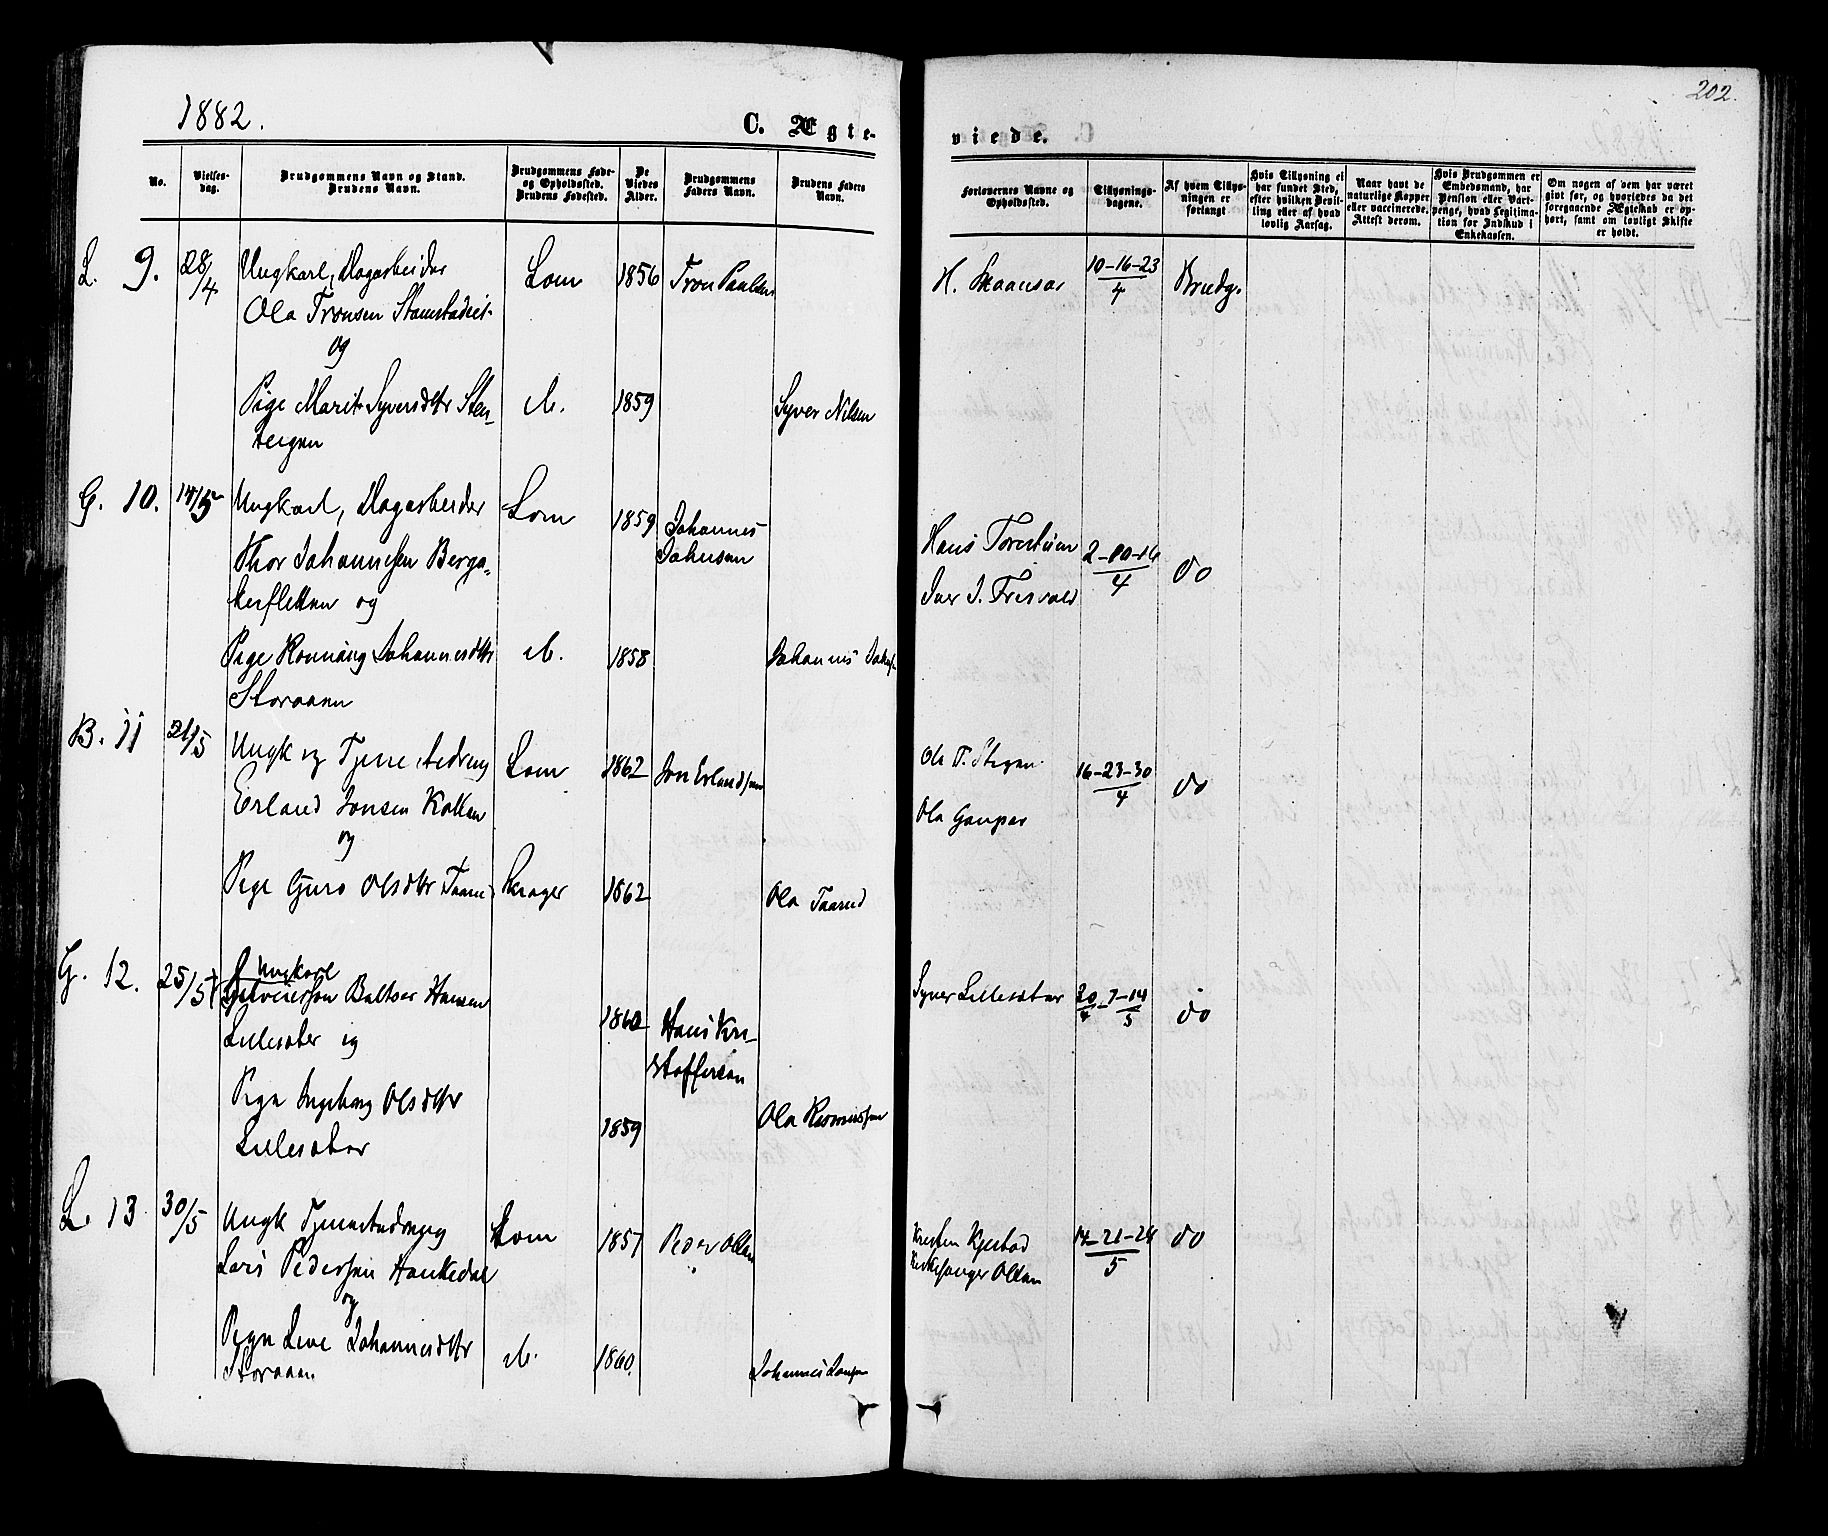 1882.
C. Ægte-
No.
Vielses-
dag.
Brudgommens Navn og Stand.
Brudens Navn.
Brudgommens Føde-
og Opholdssted.
Brudens Fødested.
De
Viedes
Alder.
Brudgommens
Faders Navn.
Brudens Faders
Navn.
L. 9. 28/4 Ungkarl, Dagarbeider Lom 1856 Tron Paulsen
Ola Tronsen
og
Pige Marit Syversdtr Sten- do. 1859 Syver Nilsen
bergen
G. 10. 14/5 Ungkarl, Dagarbeider Lom 1859 Johannes
Johnsen
Thor Johannesen Berga-
kerfletten og
Pige Rønnaug Johannesdtr do. 1858 Johannes
Storaaen
B. 11 21/5 Ungk og Tjenestedreng Lom 1862 Jon Erlandsen
Erland Jonsen Kolken
og
Pige Guro Olsdtr Skiager 1862 Ola Taarud
G. 12. 25/5 Ungkarl
Baltser Hansen
Lillesæter og 1860 Hans Kri-
stoffersen
Pige Ingeborg Olsdtr
Lillesæter 1859 Ola Rasmussen
L. 13 30/5 Ungk Tjenestedreng Lom 1857
Lars Pedersen
og
Pige Live Johannesdtr do. 1860.
Storaaen Johannes
202.
viede.
Forlovernes Navne og
Opholdssted.
Tillysnings-
dagene.
Af hvem Tillys-
ningen er
forlangt
Hvis Tillysning ei
har fundet Sted,
efter hvilken Bevil-
ling eller af hvad
lovlig Aarsag.
Naar havt de
naturlige Kopper
eller vaccinerede.
Attest derom.
Hvis Brudgommen er
Embedsmand, har
Pension eller Vart-
penge, hvad Legitima-
tion for Indskud i
Enkekassen.
Om nogen af dem har været
gift før, og hvorledes da det
foregaaende Ægteskab er op-
hørt, samt om lovligt Skifte
er holdt.
H. Skaansar 10-16-23/4 Brudg.
Hans
Iver J. Frisvold 2-10-16/4 do
Ole T. Stegen 16-23-30/4 do
Ola Gaupar
Syver Lillesæter 30/4-7-14/5 do
Kristen Kjestad 14-21-28/5 do
Kirkesanger Olsen